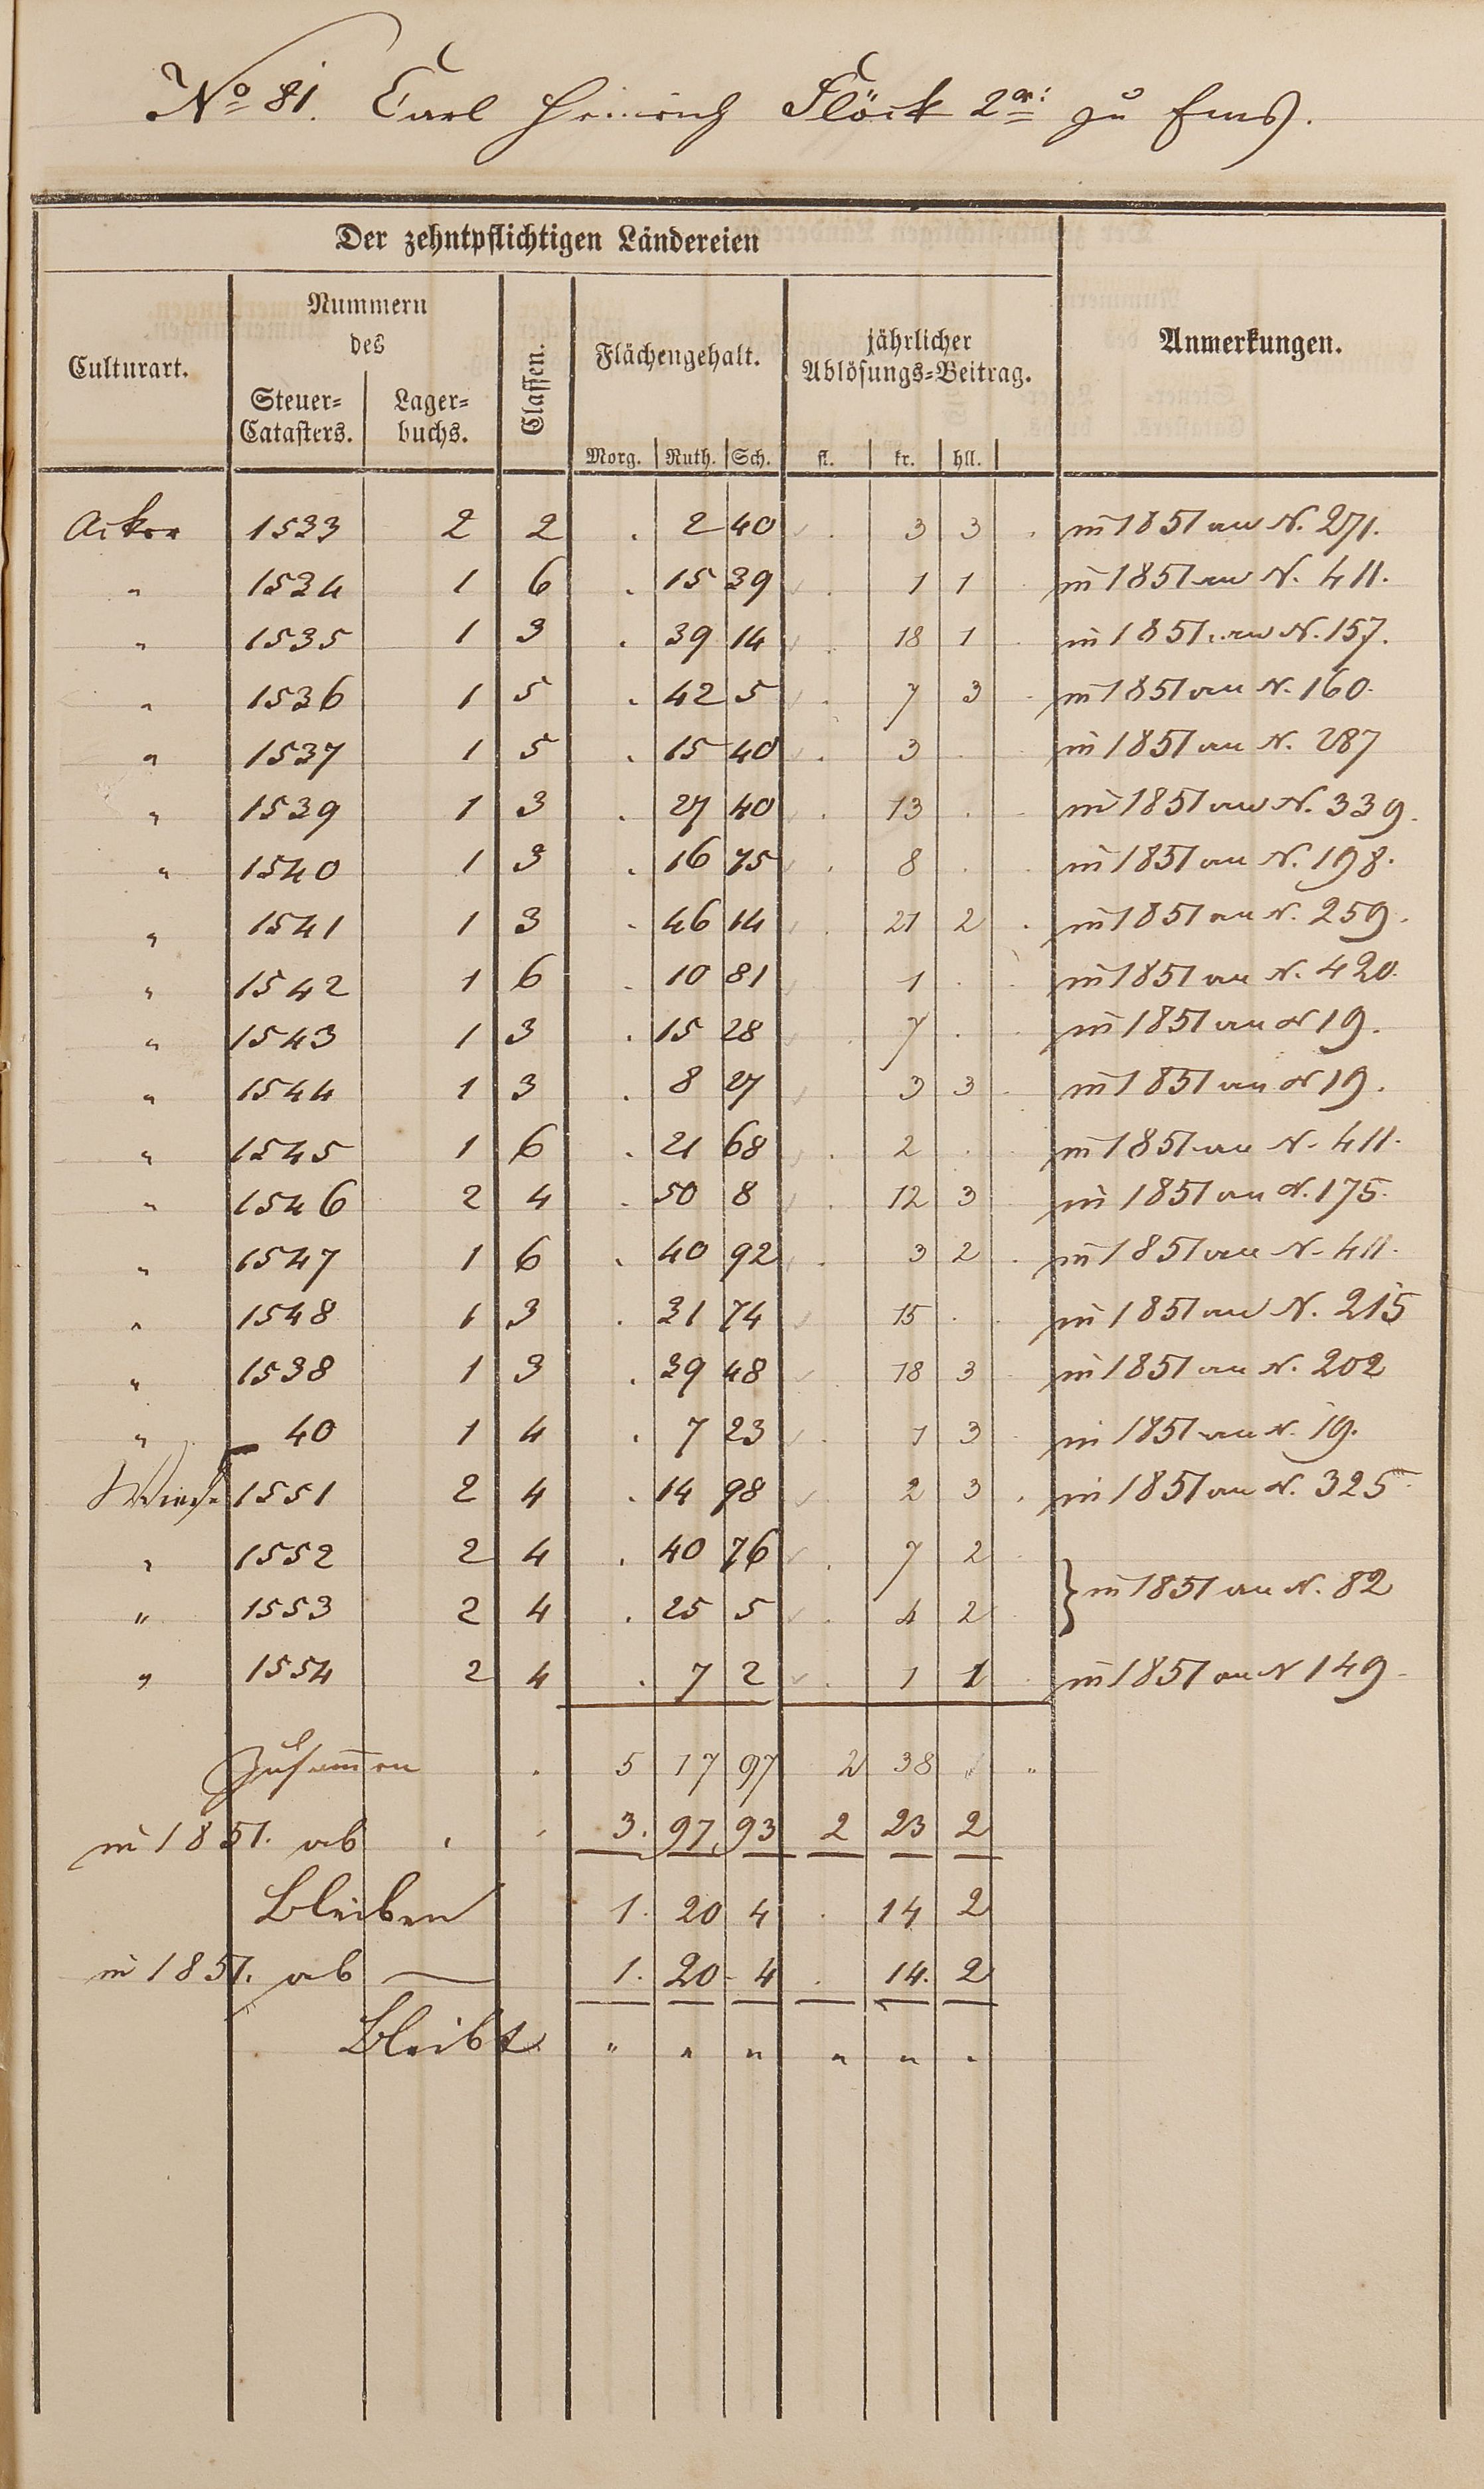 No 81. Carl Heinrich Flöck 2r: zu Ems.
Der zehntpflichtigen Ländereien
Culturart. Nummern des Classen. Flächengehalt. jährlicher Ablösungs=Beitrag. Anmerkungen.
Steuer=Catasters. Lager=buchs. Morg. Ruth. Sch. fl. kr. hll.
Acker 1533 2 2 . 2 40 . 3 3 . in 1851 an N. 271.
" 1534 1 6 . 15 39 . 1 1 in 1851 an N. 411.
" 1535 1 3 . 39 14 . 18 1 in 1851 an N. 157.
" 1536 1 5 . 42 5 . 7 3 in 1851 an N. 160.
" 1537 1 5 . 15 40 . 3 . in 1851 an N. 287
" 1539 1 3 . 27 40 . 13 . in 1851 an N. 339.
" 1540 1 3 . 16 75 . 8 . in 1851 an N. 198.
" 1541 1 3 . 46 14 . 21 2 . in 1851 an N. 259.
" 1542 1 6 . 10 81 1 . in 1851 an N. 420.
" 1543 1 3 . 15 28 . 7 . in 1851 an N 19.
" 1544 1 3 . 8 27 3 3 in 1851 an N 19.
" 1545 1 6 . 21 68 . 2 . in 1851 an N. 411.
" 1546 2 4 . 50 8 . 12 3 in 1851 an N. 175.
" 1547 1 6 . 40 92 . 3 2 . in 1851 an N. 411.
" 1548 1 3 . 31 74 15 . in 1851 an N. 215
" 1538 1 3 . 39 48 18 3 in 1851 an N. 202
" 40 1 4 . 7 23 . 1 3 in 1851 an N. 19.
Wiese 1551 2 4 . 14 98 . 2 3 . in 1851 an N. 325.
" 1552 2 4 . 40 76 . 7 2
} in 1851 an N. 82
" 1553 2 4 . 25 5 . 4 2
" 1554 2 4 . 7 2 . 1 1 in 1851 an N 149
Zusammen . 5 17 97 2 38 " "
in 1851. ab 3. 97 93 2 23 2
Bleiben 1. 20 4 . 14 2
in 1851. ab — 1. 20 4 . 14. 2
Bleibt " " " " " "